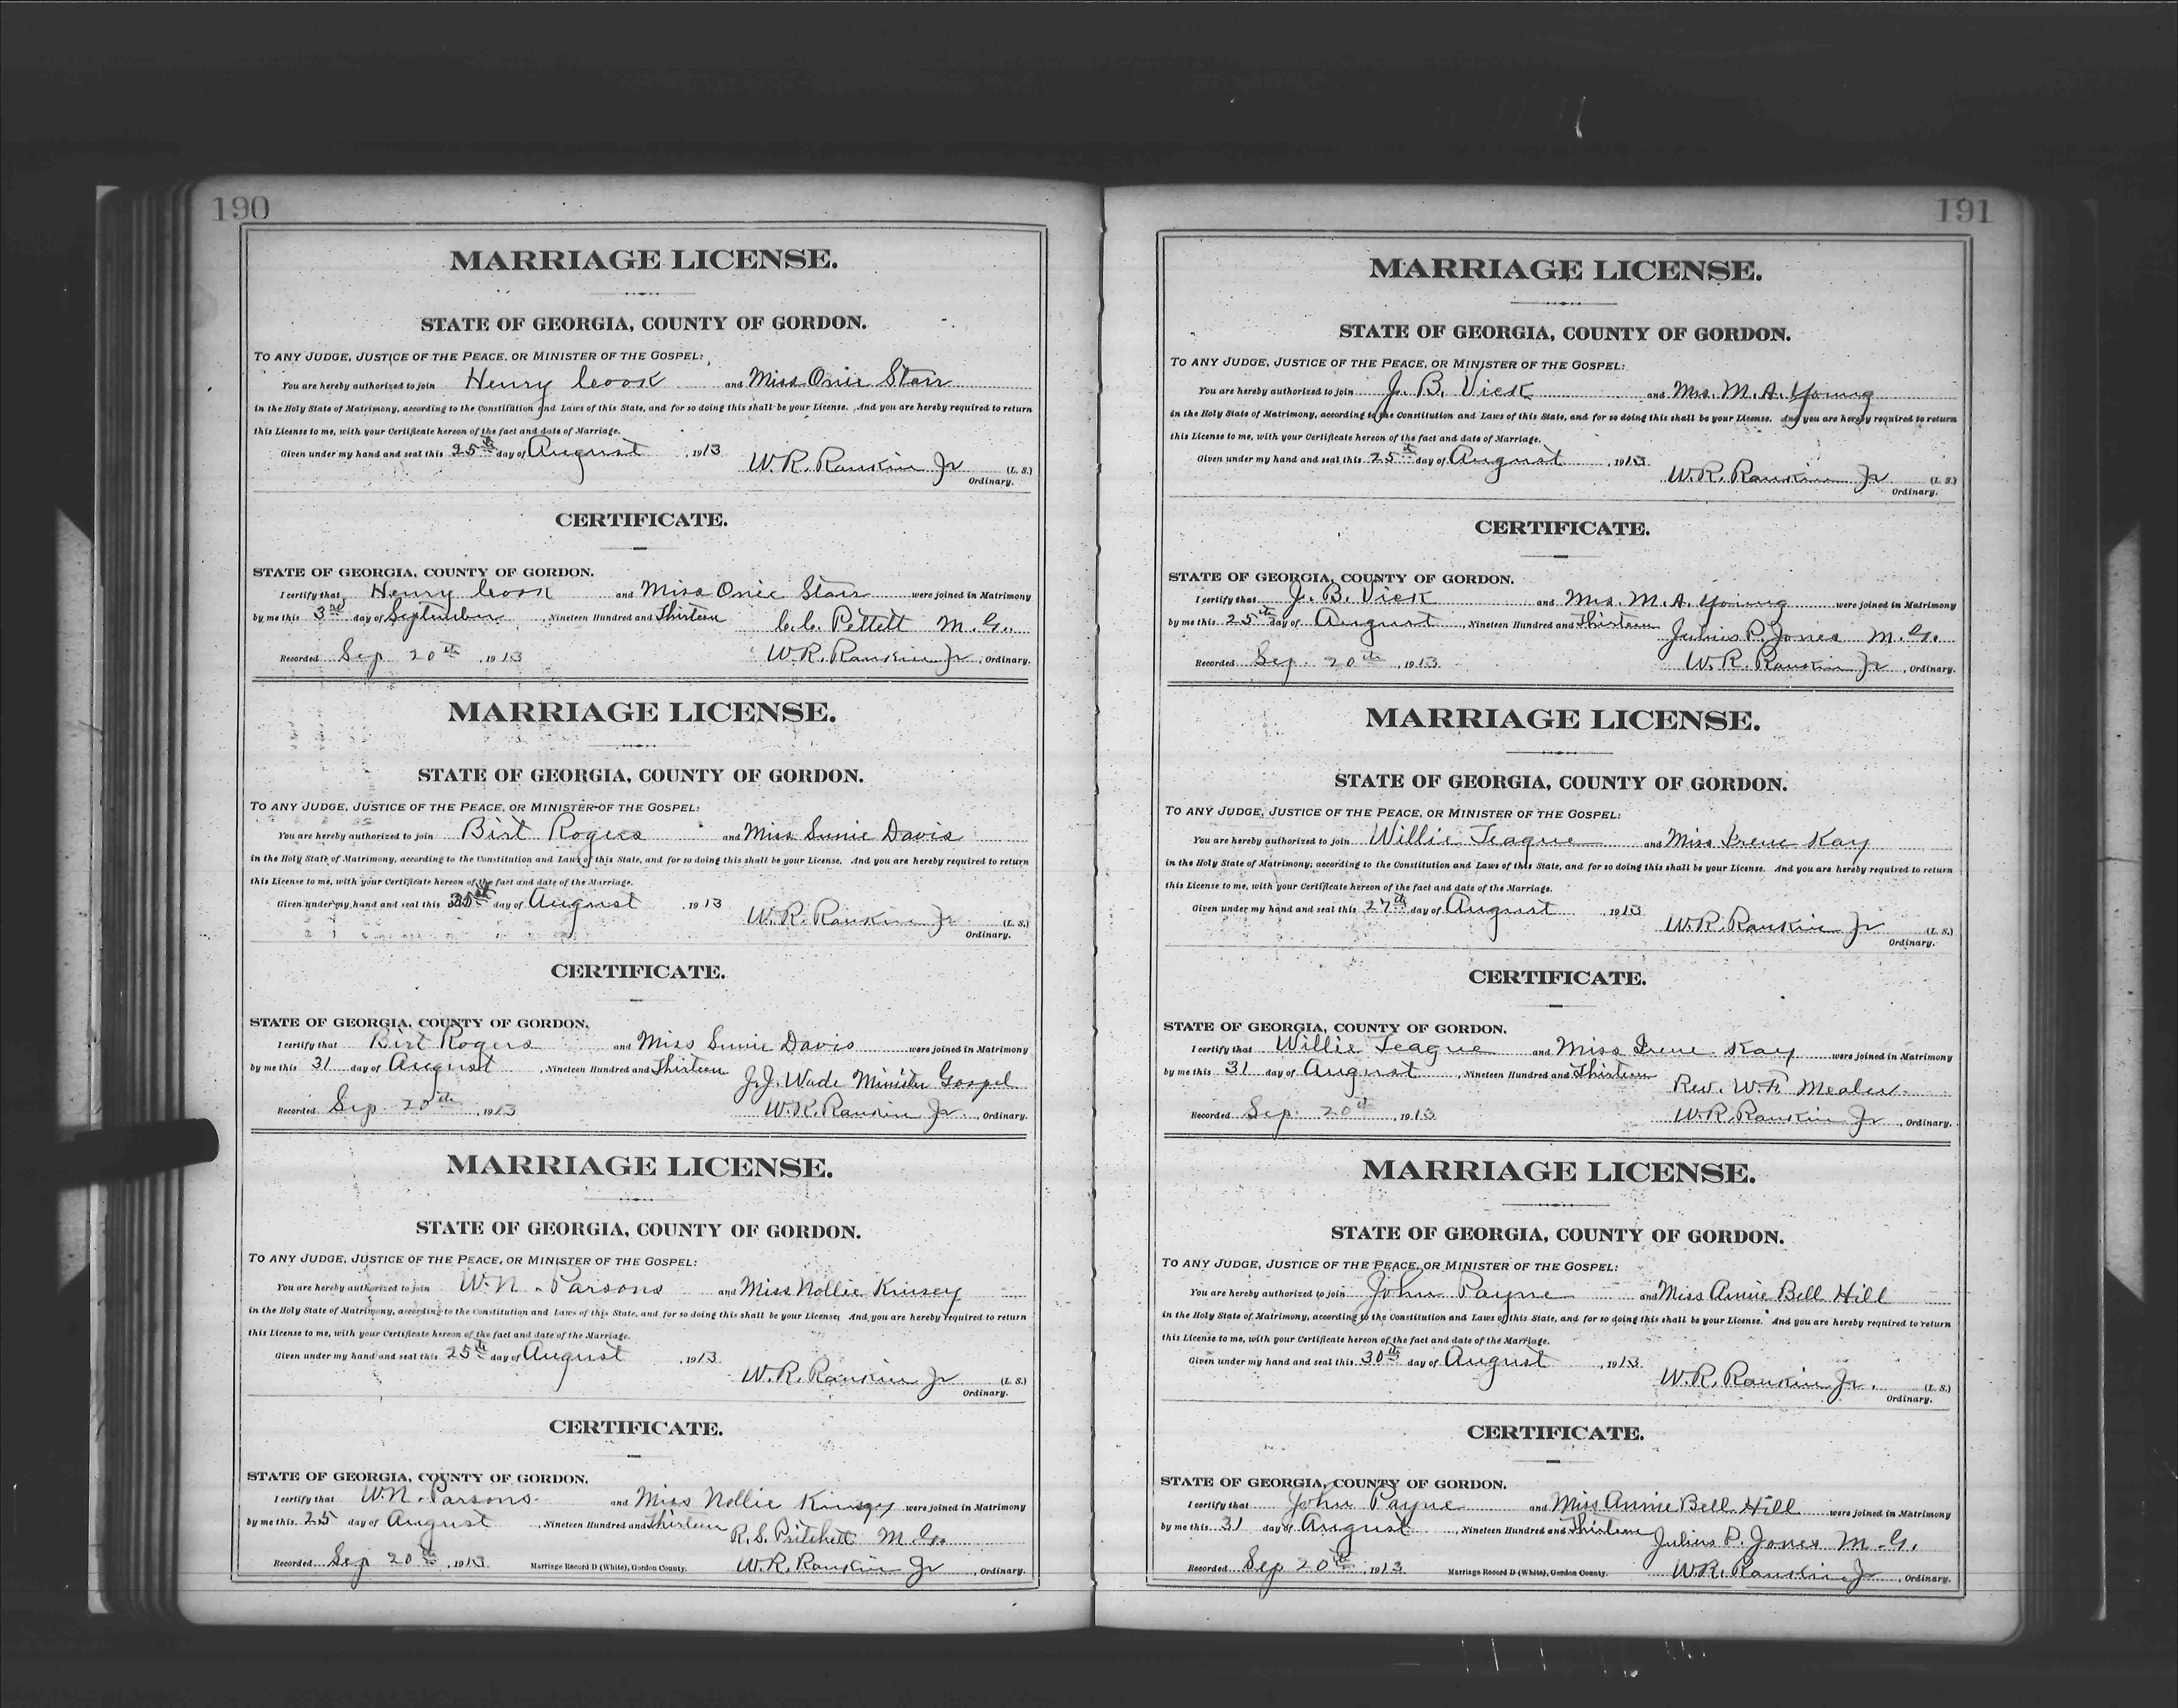 190
MARRIAGE LICENSE.
STATE OF GEORGIA, COUNTY OF GORDON.
TO ANY JUDGE, JUSTICE OF THE PEACE, OR MINISTER OF THE GOSPEL:
You are hereby authorized to join Henry Cook and Miss Onie Starr
in the Holy State of Matrimony, according to the Constitution and Laws of this State, and for so doing this shall be your License. And you are hereby required to return
this License to me, with your Certificate hereon of the fact and date of Marriage.
Given under my hand and seal this 25th day of August, 1913
W. R. Rankin Jr (L. S.)
Ordinary.
CERTIFICATE.
STATE OF GEORGIA, COUNTY OF GORDON.
I certify that Henry Cook and Miss Onie Starr were joined in Matrimony
by me this 3rd day of September, Nineteen Hundred and Thirteen C. C. Pettett M. G.
Recorded Sep 20th, 1913 W. R. Rankin Jr, Ordinary.
MARRIAGE LICENSE.
STATE OF GEORGIA, COUNTY OF GORDON.
TO ANY JUDGE, JUSTICE OF THE PEACE, OR MINISTER OF THE GOSPEL:
You are hereby authorized to join Birt Rogers and Miss Sunie Davis
in the Holy State of Matrimony, according to the Constitution and Laws of this State, and for so doing this shall be your License. And you are hereby required to return
this License to me, with your Certificate hereon of the fact and date of the Marriage.
Given under my hand and seal this day of August, 1913
W. R. Rankin Jr. (L. S.)
Ordinary.
CERTIFICATE.
STATE OF GEORGIA, COUNTY OF GORDON.
I certify that Birt Rogers and Miss Sunie Davis were joined in Matrimony
by me this 31 day of August, Nineteen Hundred and Thirteen J. J. Wade Minister Gospel
Recorded Sep 20th, 1913 W. R. Rankin Jr., Ordinary.
MARRIAGE LICENSE.
STATE OF GEORGIA, COUNTY OF GORDON.
TO ANY JUDGE, JUSTICE OF THE PEACE, OR MINISTER OF THE GOSPEL:
You are hereby authorized to join W. N. Parsons and Miss Nollie Kinsey
in the Holy State of Matrimony, according to the Constitution and Laws of this State, and for so doing this shall be your License; And you are hereby required to return
this License to me, with your Certificate hereon of the fact and date of the Marriage.
Given under my hand and seal this 25th day of August, 1913
W. R. Rankin Jr (L. S.)
Ordinary.
CERTIFICATE.
STATE OF GEORGIA, COUNTY OF GORDON.
I certify that W. N. Parsons and Miss Nollie Kinsey were joined in Matrimony
by me this 25 day of August, Nineteen Hundred and Thirteen R. S. Pritchett M. G.
Recorded Sep 20th, 1913 Marriage Record D (White), Gordon County. W. R. Rankin Jr, Ordinary.
191
MARRIAGE LICENSE.
STATE OF GEORGIA, COUNTY OF GORDON.
TO ANY JUDGE, JUSTICE OF THE PEACE, OR MINISTER OF THE GOSPEL:
You are hereby authorized to join J. B. Vick and Mrs. M. A. Young
in the Holy State of Matrimony, according to the Constitution and Laws of this State, and for so doing this shall be your License. And you are hereby required to return
this License to me, with your Certificate hereon of the fact and date of Marriage.
Given under my hand and seal this 25th day of August, 1913
W. R. Rankin Jr (L. S.)
Ordinary.
CERTIFICATE.
STATE OF GEORGIA, COUNTY OF GORDON.
I certify that J. B. Vick and Mrs. M. A. Young were joined in Matrimony
by me this 25th day of August, Nineteen Hundred and Thirteen Julius P. Jones M. G.
Recorded Sep. 20th, 1913 W. R. Rankin Jr, Ordinary.
MARRIAGE LICENSE.
STATE OF GEORGIA, COUNTY OF GORDON.
TO ANY JUDGE, JUSTICE OF THE PEACE, OR MINISTER OF THE GOSPEL:
You are hereby authorized to join Willie Teague and Miss Irene Kay
in the Holy State of Matrimony; according to the Constitution and Laws of this State, and for so doing this shall be your License. And you are hereby required to return
this License to me, with your Certificate hereon of the fact and date of the Marriage.
Given under my hand and seal this 27th day of August, 1913
W. R. Rankin Jr (L. S.)
Ordinary.
CERTIFICATE.
STATE OF GEORGIA, COUNTY OF GORDON.
I certify that Willie Teague and Miss Irene Kay were joined in Matrimony
by me this 31 day of August, Nineteen Hundred and Thirteen Rev. W. F. Mealer
Recorded Sep. 20th, 1913 W. R. Rankin Jr, Ordinary.
MARRIAGE LICENSE.
STATE OF GEORGIA, COUNTY OF GORDON.
TO ANY JUDGE, JUSTICE OF THE PEACE, OR MINISTER OF THE GOSPEL:
You are hereby authorized to join John Payne and Miss Annie Bell Hill
in the Holy State of Matrimony, according to the Constitution and Laws of this State, and for so doing this shall be your License. And you are hereby required to return
this License to me, with your Certificate hereon of the fact and date of the Marriage.
Given under my hand and seal this 30th day of August, 1913
W. R. Rankin Jr. (L. S.)
Ordinary.
CERTIFICATE.
STATE OF GEORGIA, COUNTY OF GORDON.
I certify that John Payne and Miss Annie Bell Hill were joined in Matrimony
by me this 31 day of August, Nineteen Hundred and Thirteen Julius P. Jones M. G.
Recorded Sep 20th, 1913 Marriage Record D (White), Gordon County. W. R. Rankin Jr, Ordinary.